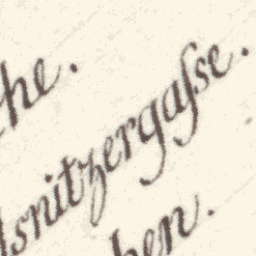 he.
snitzergaſse.
hen.